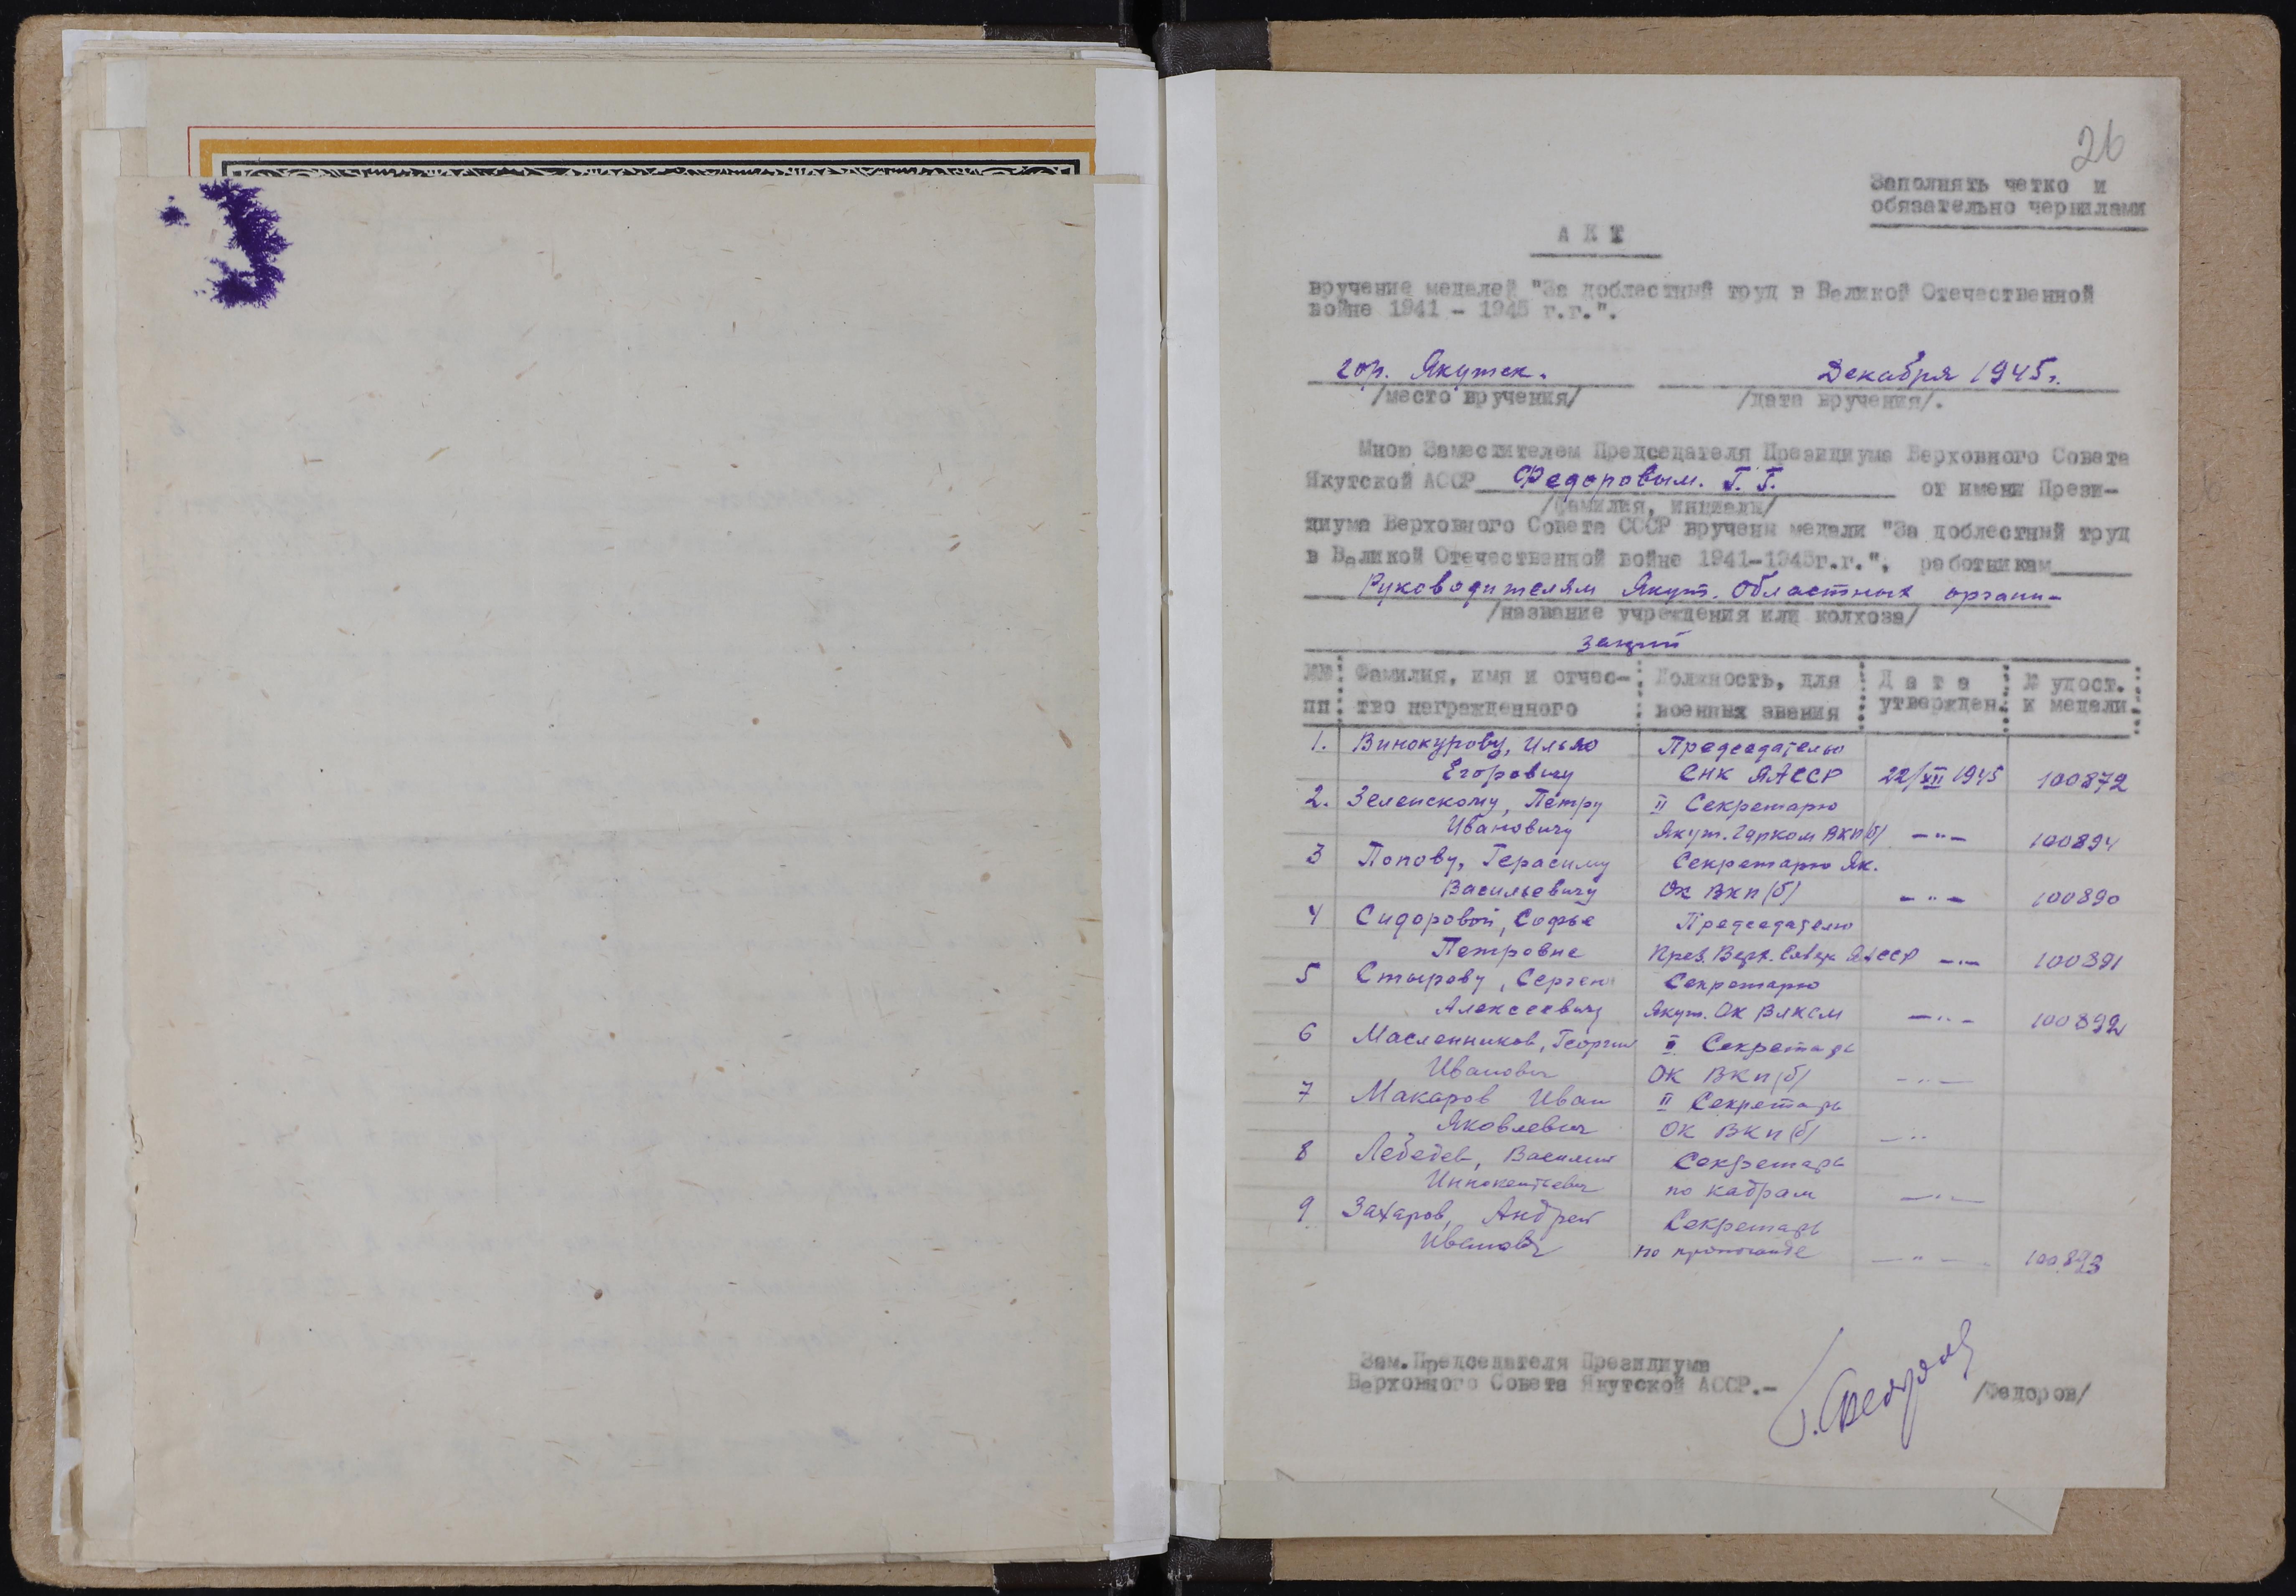 26
Заполнять четко и
обязательно чернилами
А К Т
вручение медалей "За доблестный труд в Великой Отечественной
войне 1941 - 1945 г.г.".
гор. Якутск. Декабря 1945г.
/место вручения/ /дата вручения/.
Мною Заместителем Председателя Президиума Верховного Совета
Якутской АССР Федоровым. Г. Г. от имени Прези-
/фамилия, инициалы/
диума Верховного Совета СССР вручены медали "За доблестный труд
в Великой Отечественной войне 1941-1945г.г.", работникам
Руководителям Якут. Областных органи-
/название учреждения или колхоза/
заций
№№ Фамилия, имя и отчес- Должность, для Д а т а № удост.
пп тво награжденного военных звания утвержден. и медали
1. Винокурову, Илью Председателю
Егоровичу СНК ЯАССР 22/XII 1945 100872
2. Зеленскому, Петру II Секретарю
Ивановичу Якут. Горком ВКП(б) —"— 100894
3 Попову, Герасиму Секретарю Як.
Васильевичу ОК ВКП(б) —"— 100890
4 Сидоровой, Софье Председателю
Петровне През. Верх. Совета ЯАССР —"— 100891
5 Стырову, Сергею Секретарю
Алексеевичу Якут. ОК ВЛКСМ —"— 100892
6 Масленников, Георгий Секретарь
Иванович ОК ВКП(б) —"—
7 Макаров Иван II Секретарь
Яковлевич ОК ВКП(б) —"
8 Лебедев, Василий Секретарь
Иннокентьевич по кадрам —"—
9 Захаров, Андрей Секретарь
Иванович по пропоганде —"—
Зам.Председателя Президиума
Верховного Совета Якутской АССР.-
Г. Федоров /Федоров/